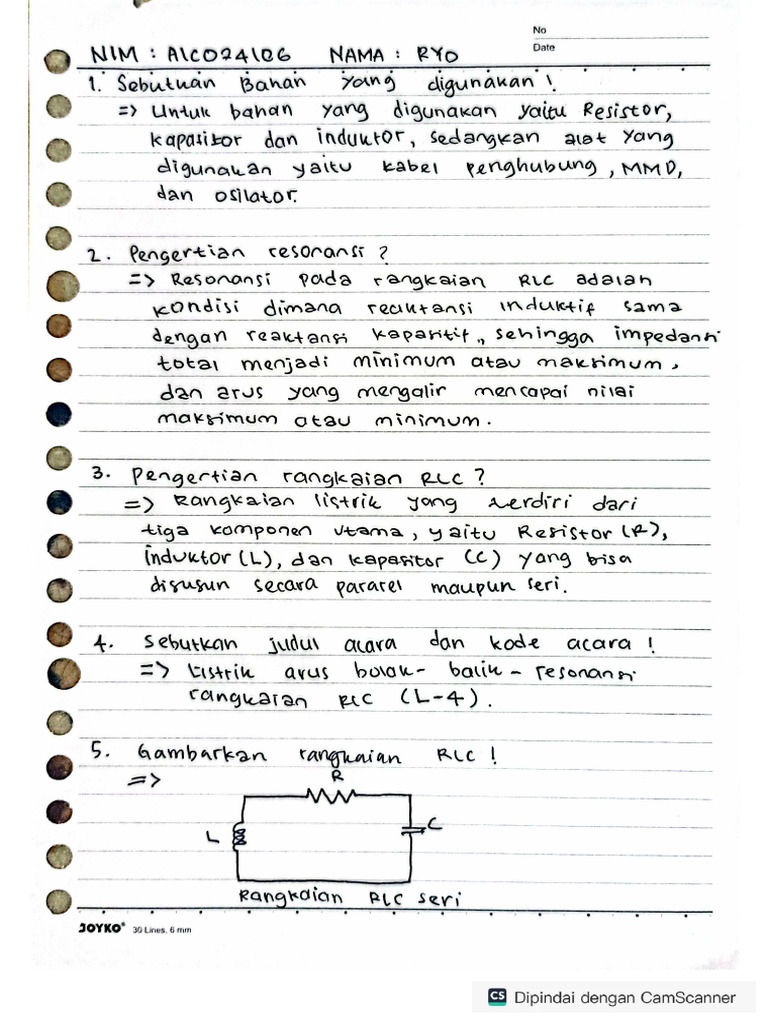 No
Date
NIM : A1C024106 NAMA : RYO
1. Sebutuan Bahan yang digunakan!
=> Untuk bahan yang digunakan yaitu Resistor,
kapasitor dan induktor, sedangkan alat yang
digunakan yaitu kabel penghubung, MMD,
dan osilator.
2. Pengertian resonansi ?
=> Resonansi pada rangkaian RLC adalah
kondisi dimana reaktansi induktif sama
dengan reaktansi kapasitif,, sehingga impedansi
total menjadi minimum atau maksimum,
dan arus yang mengalir mencapai nilai
maksimum atau minimum.
3. Pengertian rangkaian RLC ?
=> Rangkaian listrik yang terdiri dari
tiga komponen utama, yaitu Resistor (R),
induktor (L), dan kapasitor (C) yang bisa
disusun secara pararel maupun seri.
4. Sebutkan judul acara dan kode acara !
=> Listrik arus bolak-balik - resonansi
rangkaian RLC (L-4).
5. Gambarkan rangkaian RLC !
=>
R
L
C
Rangkaian RLC seri
JOYKO® 30 Lines, 6 mm
CS Dipindai dengan CamScanner